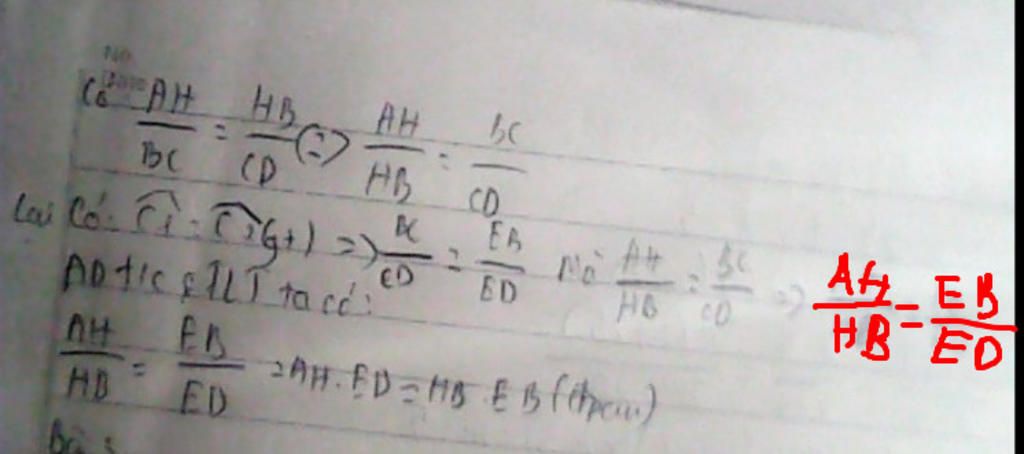 No
Có AH/BC = HB/CD (=) AH/HB = BC/CD
Lại Có: C1 = C2 (gt) => BC/CD = EB/ED Mà AH/HB = BC/CD => AH/HB = EB/ED
AD t/c ta có:
AH/HB = EB/ED => AH.ED = HB.EB (đpcm)